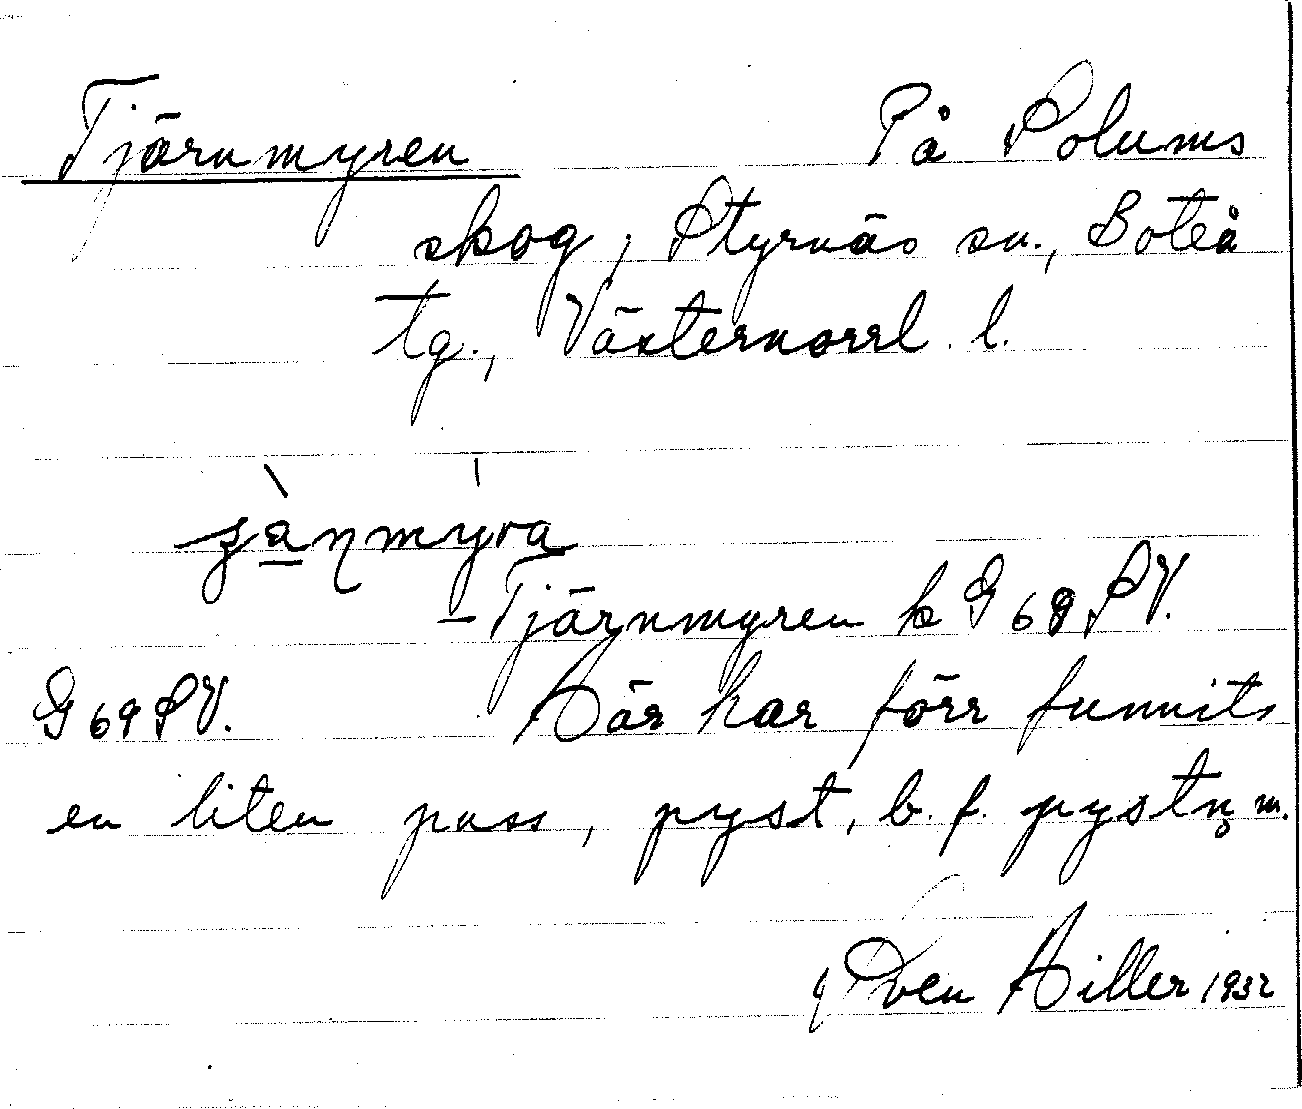 Tjärnmyren På Solums
skog, Styrnäs sn., Boteå
tg., Västernorrl. l.
-Tjärnmyren k G 68 SV.
G 69 SV. Där har förr funnits
en liten puss, pyst, b. f. m.
Sven Hiller 1932